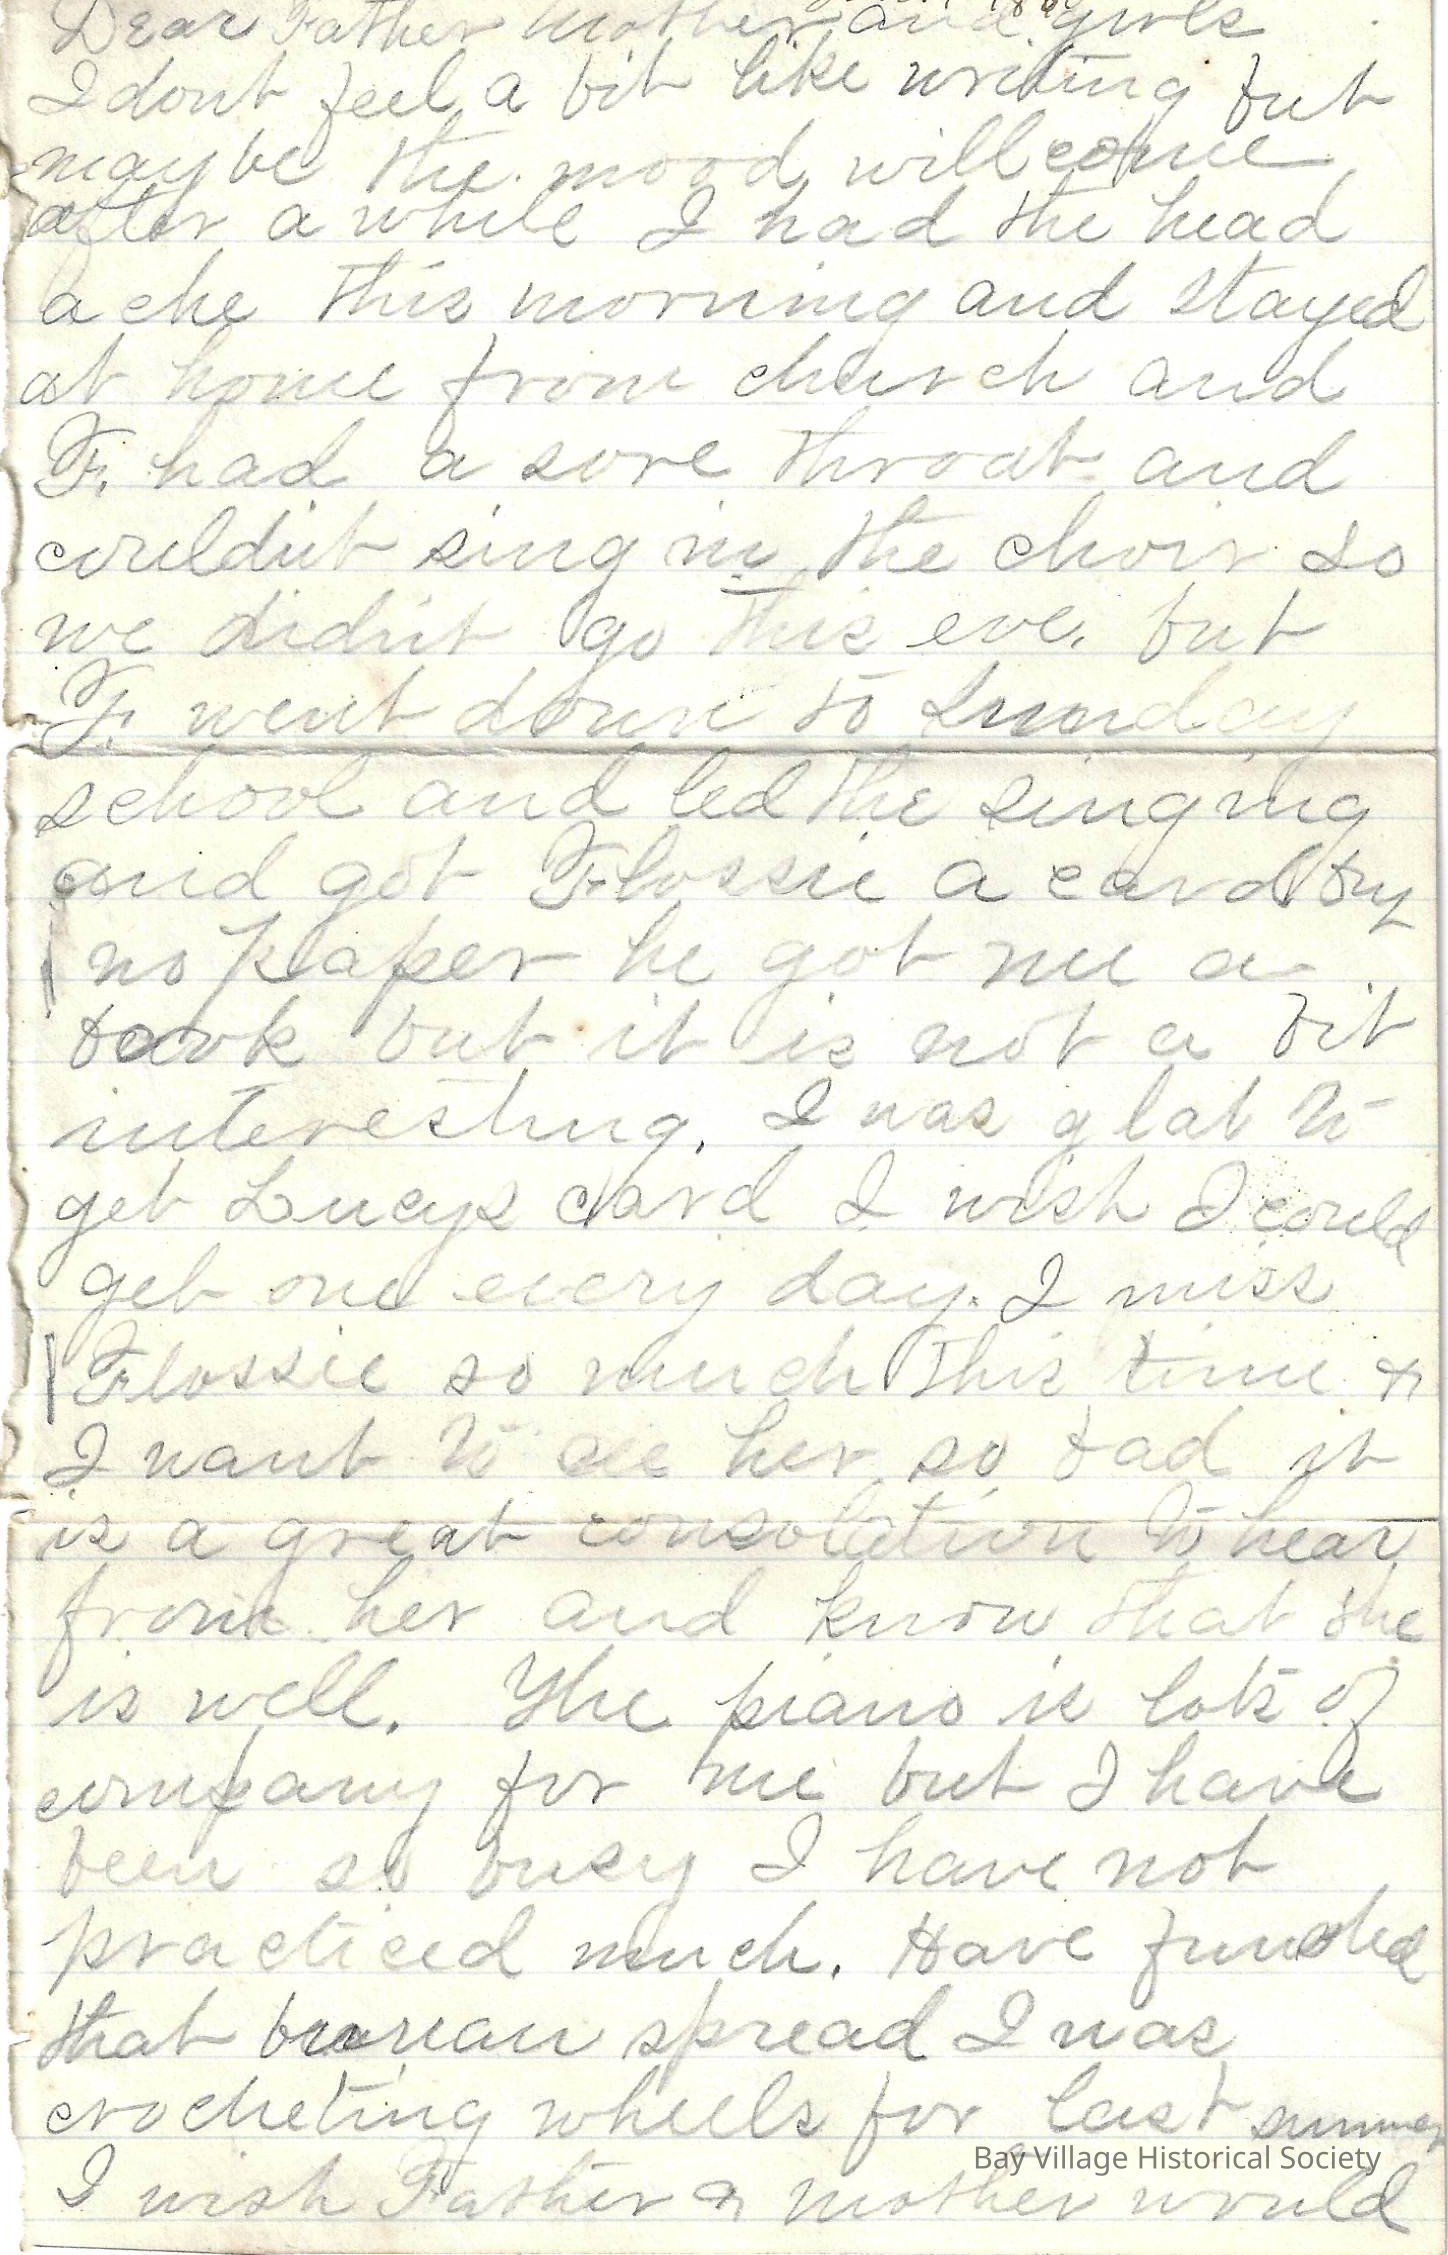 Dear Father Mother and girls
I dont feel a bit like writing but
may be the mood will come
after a while I had the head
ache this morning and stayed
at home from church and
F. had a sore throat and
couldnt sing in the choir so
we didnt go this eve. but
F. went down to Sunday
school and led the singing
and got Flossie a card by
no paper he got me a
book but it is not a bit
interesting. I was glat to
get Lucys card I wish I could
get one every day. I miss
Flossie so much this time &
I want to see her so bad it
is a great consolation to hear
from her and know that she
is well. The piano is lots of
company for me but I have
been so busy I have not
practiced much. Have finished
that bureau spread I was
crocheting wheels for last summer
Bay Village Historical Society
I wish Father & mother would